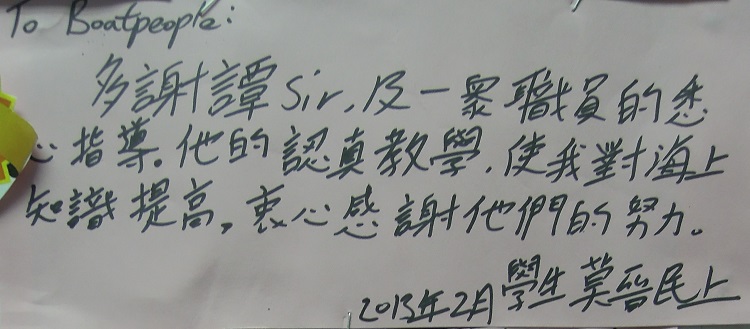 To Boatpeople:
多謝譚Sir,及一眾職員的悉
心指導。他的認真教學,使我對海上
知識提高,衷心感謝他們的努力。
2013年2月學生莫晉民上